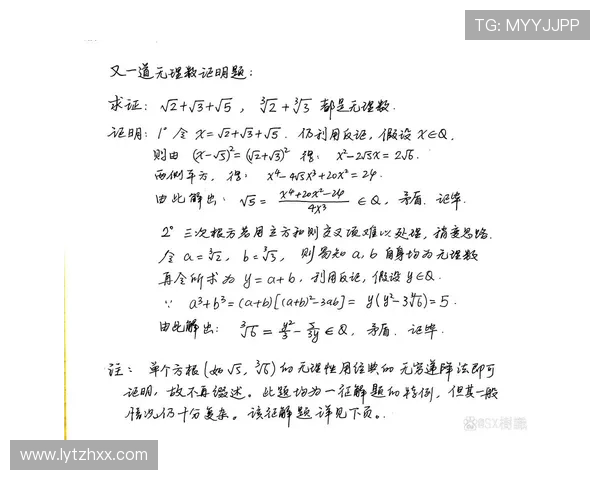 TG: MYYJJPP
又一道无理数证明题:
求证: √2+√3+√5 , ∛2+∛3 都是无理数.
证明: 1° 令 x=√2+√3+√5. 仍利用反证, 假设 x∈Q,
则由 (x-√5)²=(√2+√3)² 得: x²-2√5x=2√6.
两侧平方, 得: x⁴-4√5x³+20x²=24.
由此解出: √5 = (x⁴+20x²-24)/4x³ ∈Q, 矛盾. 证毕.
2° 三次根方若用立方和则交叉项难以处理, 稍变思路.
令 a=∛2, b=∛3, 则易知 a,b 自身均为无理数
再令所求为 y=a+b, 利用反证, 假设 y∈Q.
∵ a³+b³=(a+b)[(a+b)²-3ab]= y(y²-3∛6)=5.
由此解出: ∛6 = y²/3 - 5/3y ∈Q, 矛盾. 证毕.
注: 单个方根(如√5, ∛6)的无理性用经典的无穷递降法即可
证明, 故不再缀述. 此题均为一征解题的特例, 但其一般
情况仍十分复杂. 该征解题详见下页.
www.lytzhxx.com